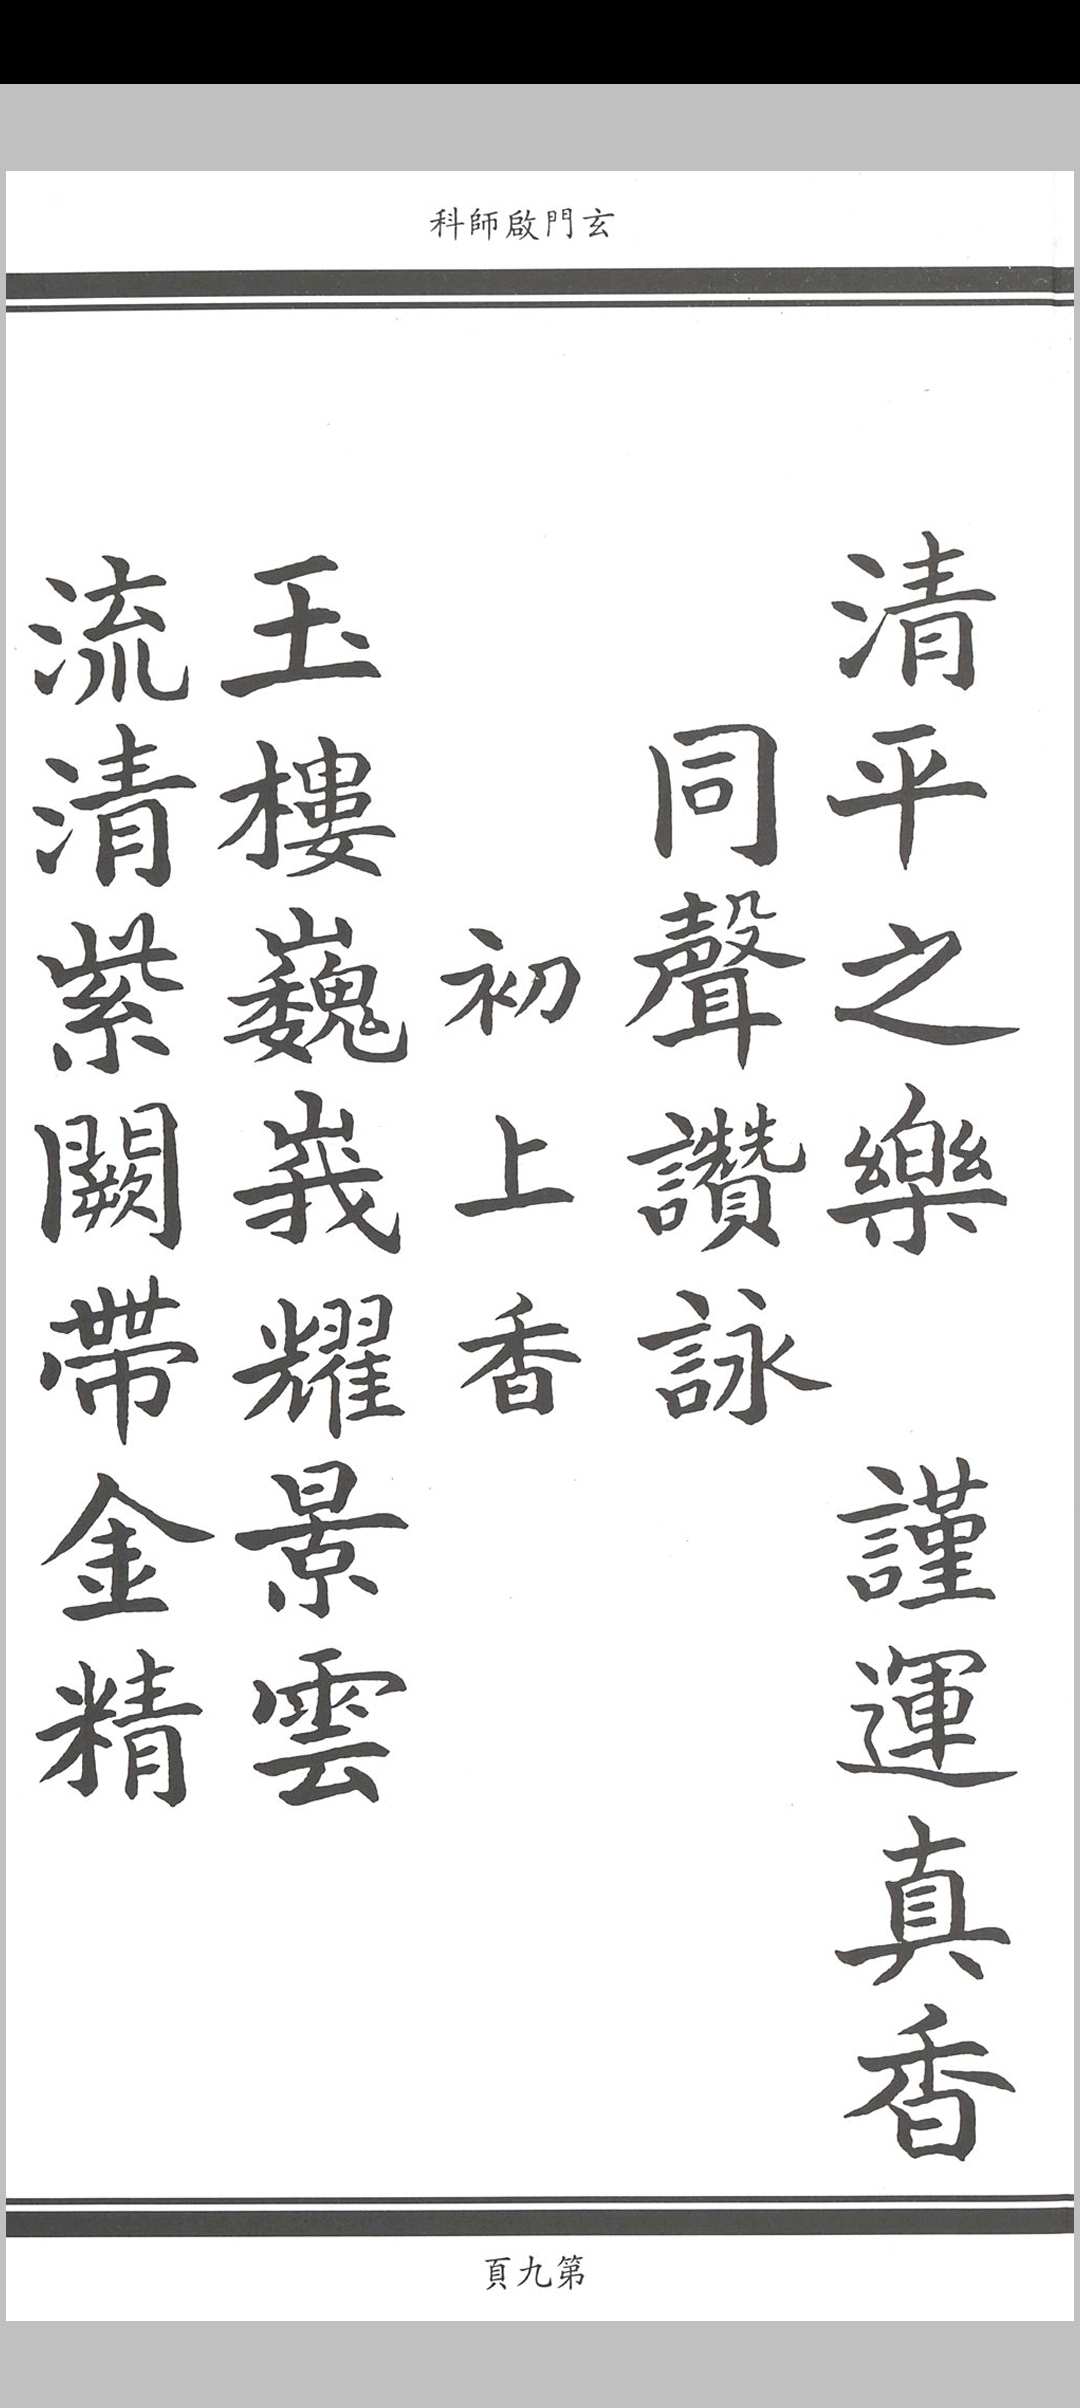 玄門啟師科
清平之樂　謹運真香
同聲讚詠
初上香
玉樓巍峩耀景雲
流清紫闕帶金精
第九頁